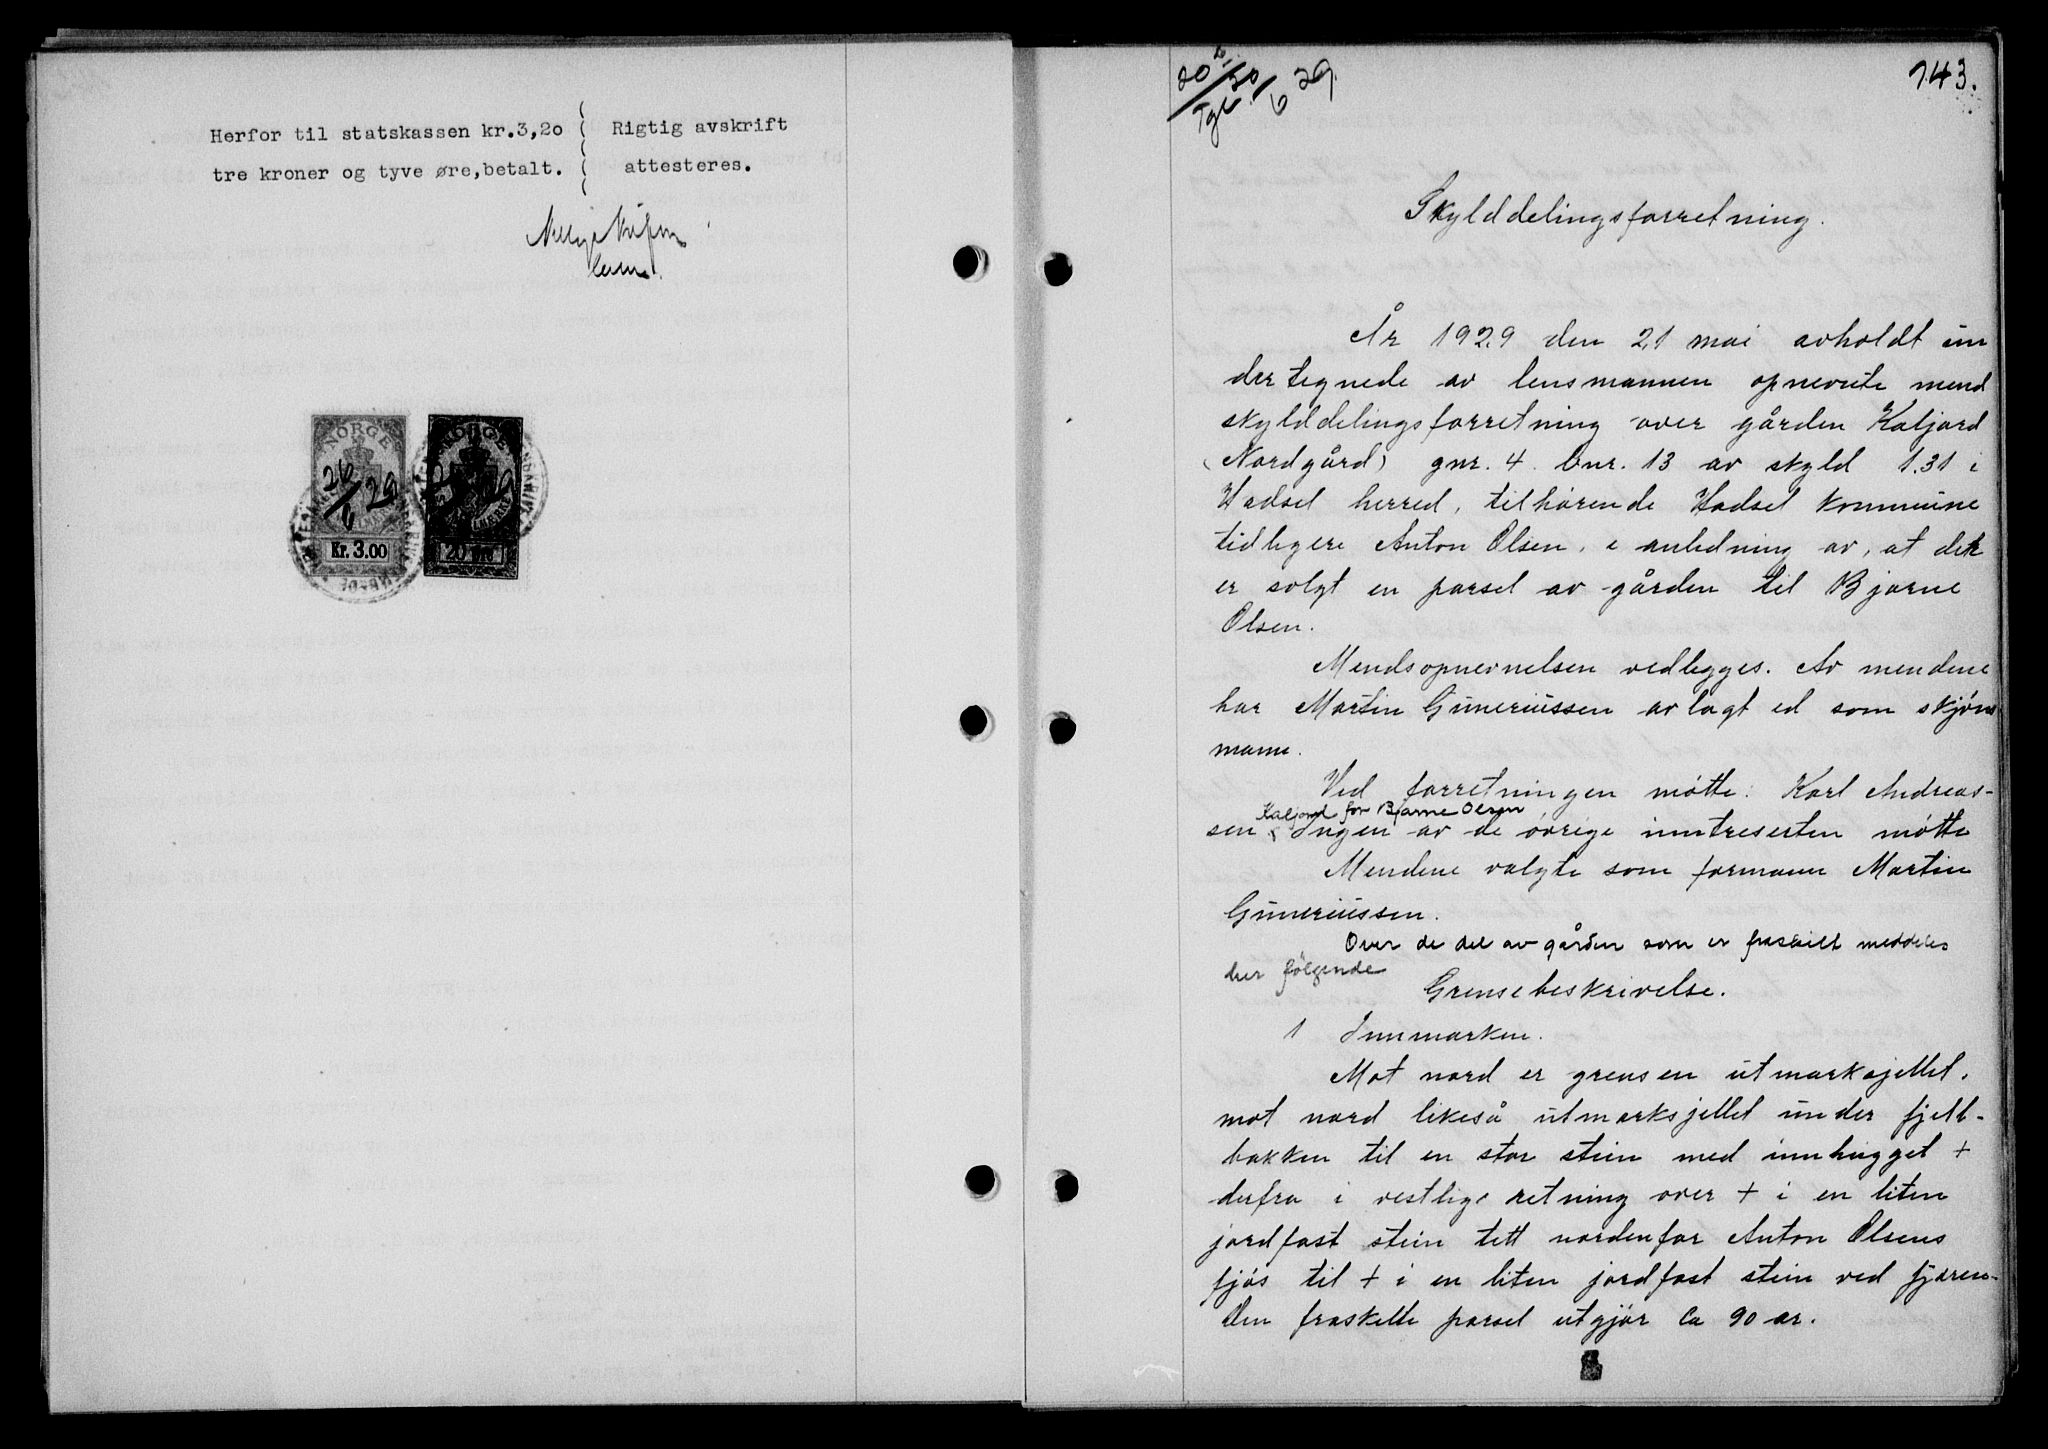 Herfor til statskassen kr.3,20
tre kroner og tyve øre,betalt.
Rigtig avskrift
attesteres.
NORGE
26/6 29
Kr. 3.00
NORGE
29
20
20/6 29
Tgb.
743.
Skylddelingsforretning.
År 1929 den 21 mai avholdt un
dertegnede av lensmannen opnevnte mend
skylddelingsforretning over gården Kaljord
(Nordgård) gnr. 4 bnr. 13 av skyld 1.31 i
Hadsel herred, tilhørende Hadsel kommune
tidligere Anton Olsen, i anledning av, at der
er solgt en parsel av gården til Bjarne
Olsen.
Mendsopnevnelsen vedlegges. Av mendene
har Martin Guneriussen avlagt ed som skjøns
mann.
Ved forretningen møtte: Karl Andreas-
Kaljord for Bjarne Olsen
sen Ingen av de øvrige inntreserten møtte
Mendene valgte som formann Martin
Guneriussen.
Over de del av gården som er fraskilt meddeles
her følgende
Grensebeskrivelse.
1 Innmarken.
Mot nord er grensen utmarksgjellet.
mot nord likeså utmarksjellet under fjell-
bakken til en stor stein med innhugget +
derfra i vestlige retning over + i en liten
jordfast stein tett nordenfor Anton Olsens
fjøs til + i en liten jordfast stein ved fjæren-
Den fraskilte parsel utgjør ca 90 ar.